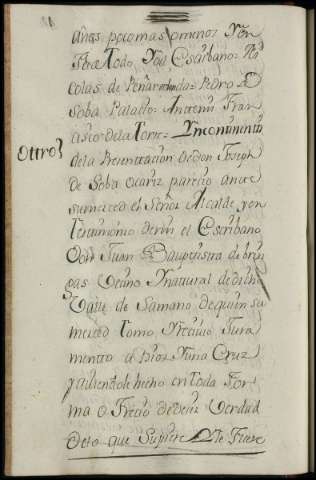 años pocomas omenos Yen
feé de todo Yo el Escribano= Ni
colas de Peñarredonda= Pedro de
Soba Palacio= Antemi Fran
cisco de la Torre= Yncontinenti
Ottro} de la Presentacion de don Joseph
de Soba ocariz parecio ante
sumerced el Señor Alcalde, y en
testimonio de mi el Escribano
Don Juan Bauptistra de brin
gas Vecino Ynattural de dicho
Valle de Samano de quien su
merced tomo Yrecivio Jura
mentto a Dios Yuna Cruz
y aviendole hecho en toda for
ma ofrecio de decir Verdad
delo que Supiere Yle fuere